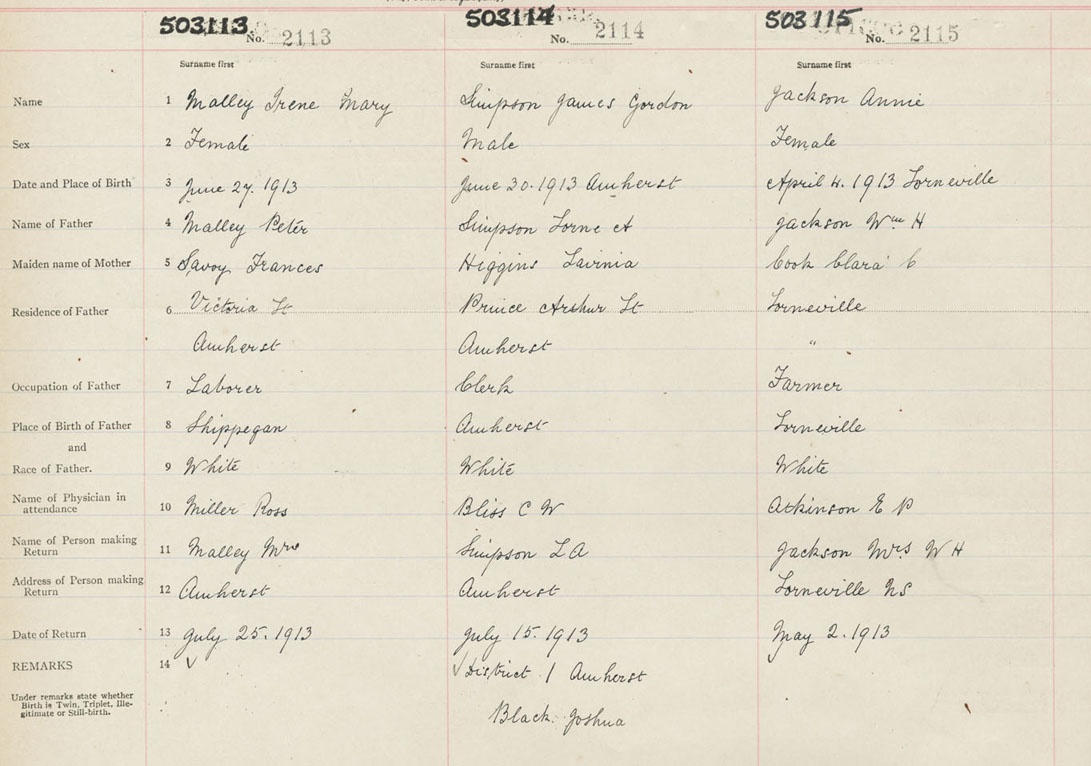 503113 503114 503115
No. 2113 No. 2114 No. 2115
Surname first Surname first Surname first
Name 1 Malley Irene Mary Simpson James Gordon Jackson Annie
Sex 2 Female Male Female
Date and Place of Birth 3 June 27. 1913 June 30. 1913 Amherst April 4. 1913 Lorneville
Name of Father 4 Malley Peter Simpson Lorne A Jackson Wm H
Maiden name of Mother 5 Savoy Frances Higgins Lavinia Cook Clara C
Residence of Father 6 Victoria St Prince Arthur St Lorneville
Amherst Amherst "
Occupation of Father 7 Laborer Clerk Farmer
Place of Birth of Father 8 Shippegan Amherst Lorneville
and
Race of Father. 9 White White White
Name of Physician in
attendance 10 Miller Ross Bliss C W Atkinson E P
Name of Person making
Return 11 Malley Mrs Simpson L A Jackson Mrs W H
Address of Person making
Return 12 Amherst Amherst Lorneville NS
Date of Return 13 July 25. 1913 July 15. 1913 May 2. 1913
REMARKS 14 √ √ District 1 Amherst
Under remarks state whether
Birth is Twin, Triplet, Ille-
gitimate or Still-birth.
Black. Joshua